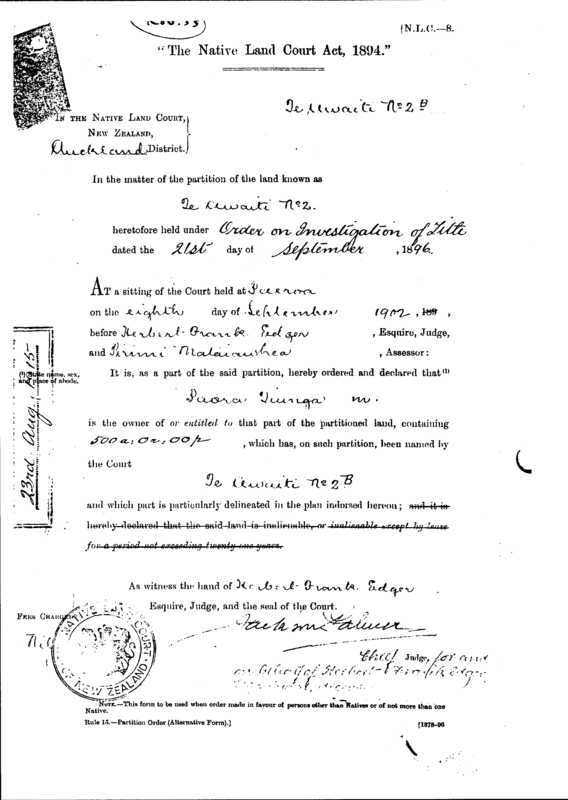 [N.L.C.—8.
"The Native Land Court Act, 1894."
Te Awaiti No 2 B
IN THE NATIVE LAND COURT,
NEW ZEALAND,
Auckland District.
In the matter of the partition of the land known as
Te Awaiti No 2.
heretofore held under Order on Investigation of Title
dated the 21st day of September, 1896.
AT a sitting of the Court held at Paeroa
on the eighth day of September 1902, 189 ,
before Herbert Frank Edger, Esquire, Judge,
and Pirimi, Assessor:
It is, as a part of the said partition, hereby ordered and declared that(1)
(1) State name, sex,
and place of abode.
Paora Tiunga m.
is the owner of or entitled to that part of the partitioned land, containing
500a, 0r, 00p, which has, on such partition, been named by
the Court
Te Awaiti No 2 B
and which part is particularly delineated in the plan indorsed hereon; and it is
hereby declared that the said land is inalienable, or inalienable except by lease
for a period not exceeding twenty-one years.
23rd Aug. 1915
As witness the hand of Herbert Frank Edger
Esquire, Judge, and the seal of the Court.
FEES CHARGED
Nil
NATIVE LAND COURT
OF NEW ZEALAND
Chief Judge, for and
on behalf of Herbert Frank Edger
NOTE.—This form to be used when order made in favour of persons other than Natives or of not more than one
Native.
Rule 15.—Partition Order (Alternative Form).]
[1878-96